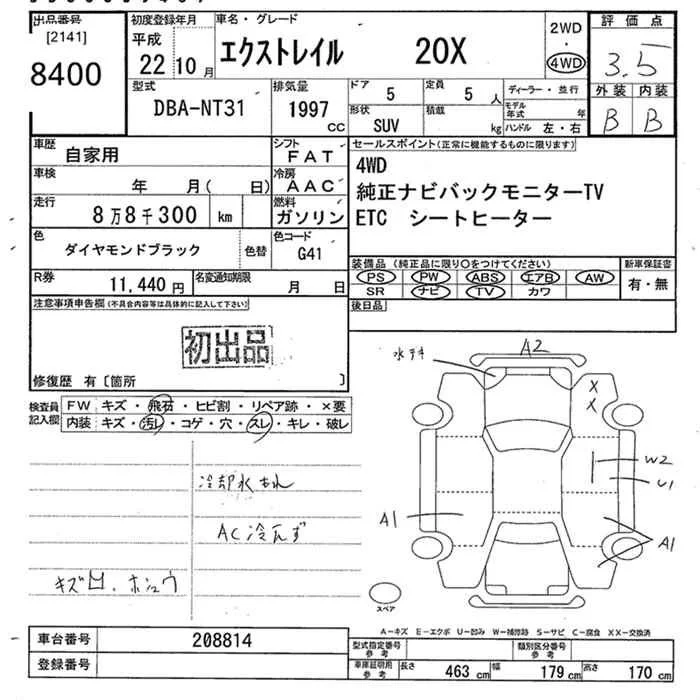 出品番号 初度登録年月 車名・グレード 2WD 評価点
[2141] 平成 ・
8400 22 10月 エクストレイル 20X 4WD 3.5
型式 排気量 ドア 5 定員 5人 ディーラー・並行 外装 内装
DBA-NT31 1997 cc 形状 SUV 積載 kg モデル年式 ハンドル 左・右 B B
車歴 自家用 シフト FAT セールスポイント(正常に機能するものに限ります)
車検 年 月( 日) 冷房 AAC 4WD
走行 8万8千300 km 燃料 ガソリン 純正ナビバックモニターTV
ETC シートヒーター
色 ダイヤモンドブラック 色替 色コード G41
装備品 (純正品に限り○をつけてください) 新車保証書
R券 11,440円 名変通知期限 月 日 PS PW ABS エアB AW 有・無
SR ナビ TV カワ
注意事項申告欄(不具合内容等は具体的に記入して下さい) 後日品
初出品
修復歴 有〔箇所 〕
検査員記入欄 FW キズ・飛石・ヒビ割・リペア跡・×要
内装 キズ・汚レ・コゲ・穴・スレ・キレ・破レ
A2
X
X
冷却水もれ W2
U1
AC冷えず A1
A1
スペア
A-キズ E-エクボ U-凹み W-補修跡 S-サビ C-腐食 XX-交換済
車台番号 208814 型式指定番号 参考 類別区分番号 参考
登録番号 車庫証明用 参考 長さ 463 cm 幅 179 cm 高さ 170 cm